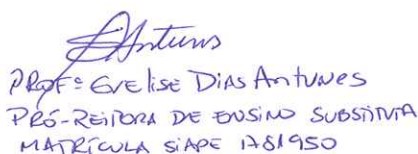 Antunes
PROFª EVELISE DIAS ANTUNES
PRÓ-REITORA DE ENSINO SUBSTITUTA
MATRÍCULA SIAPE 1781950